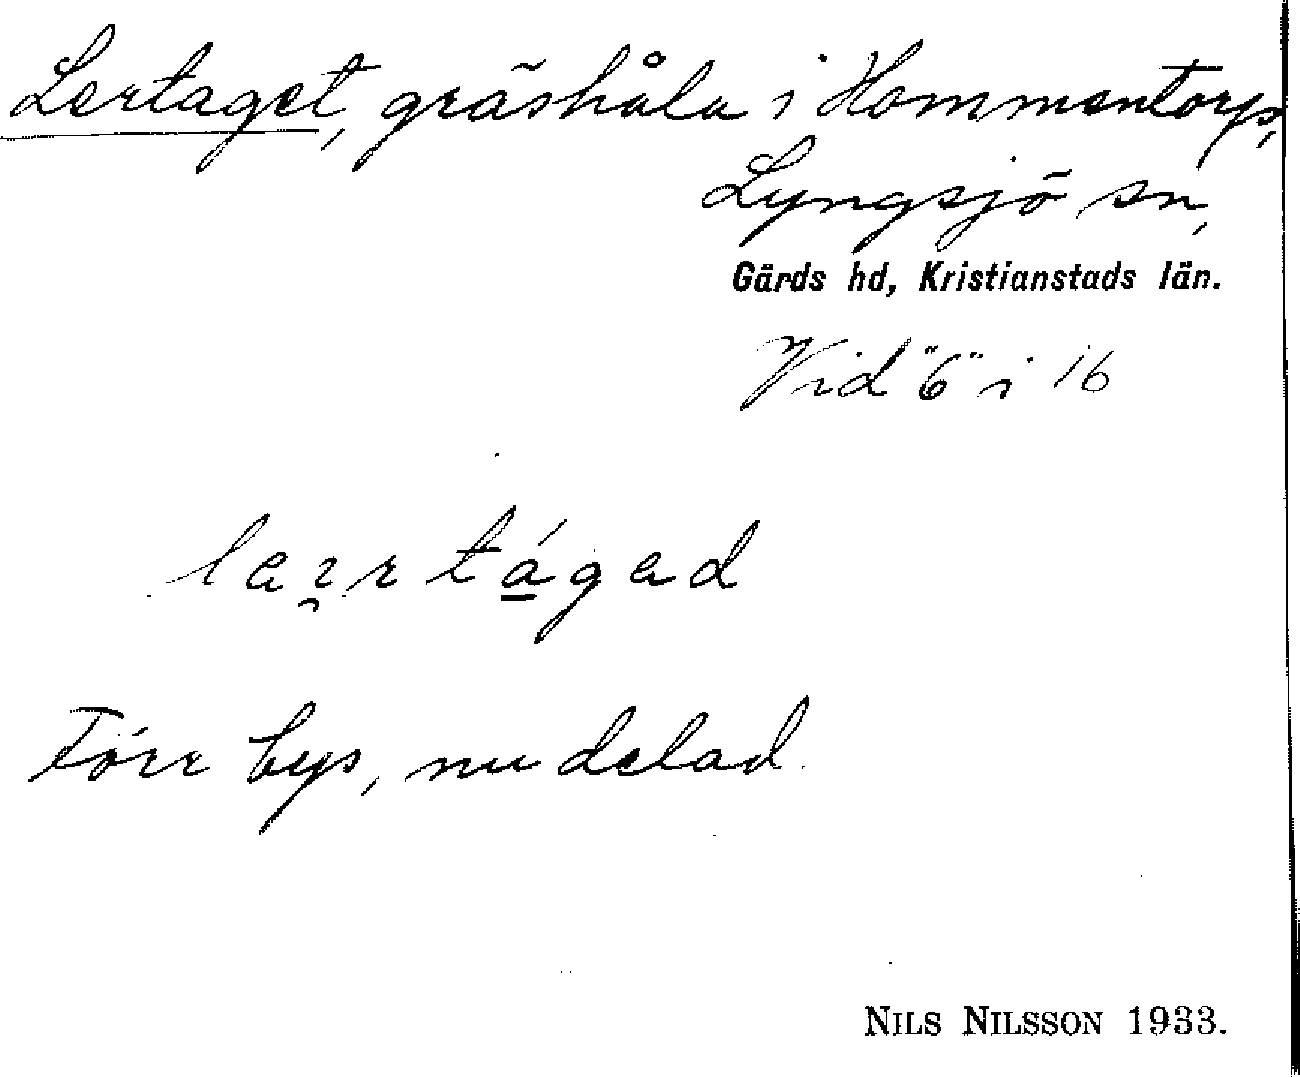 Lertaget, gräshåla i Hommentorp,
Lyngsjö sn,
Gärds hd, Kristianstads län.
Vid "6" i 16
Förr bys, nu delad.
NILS NILSSON 1933.